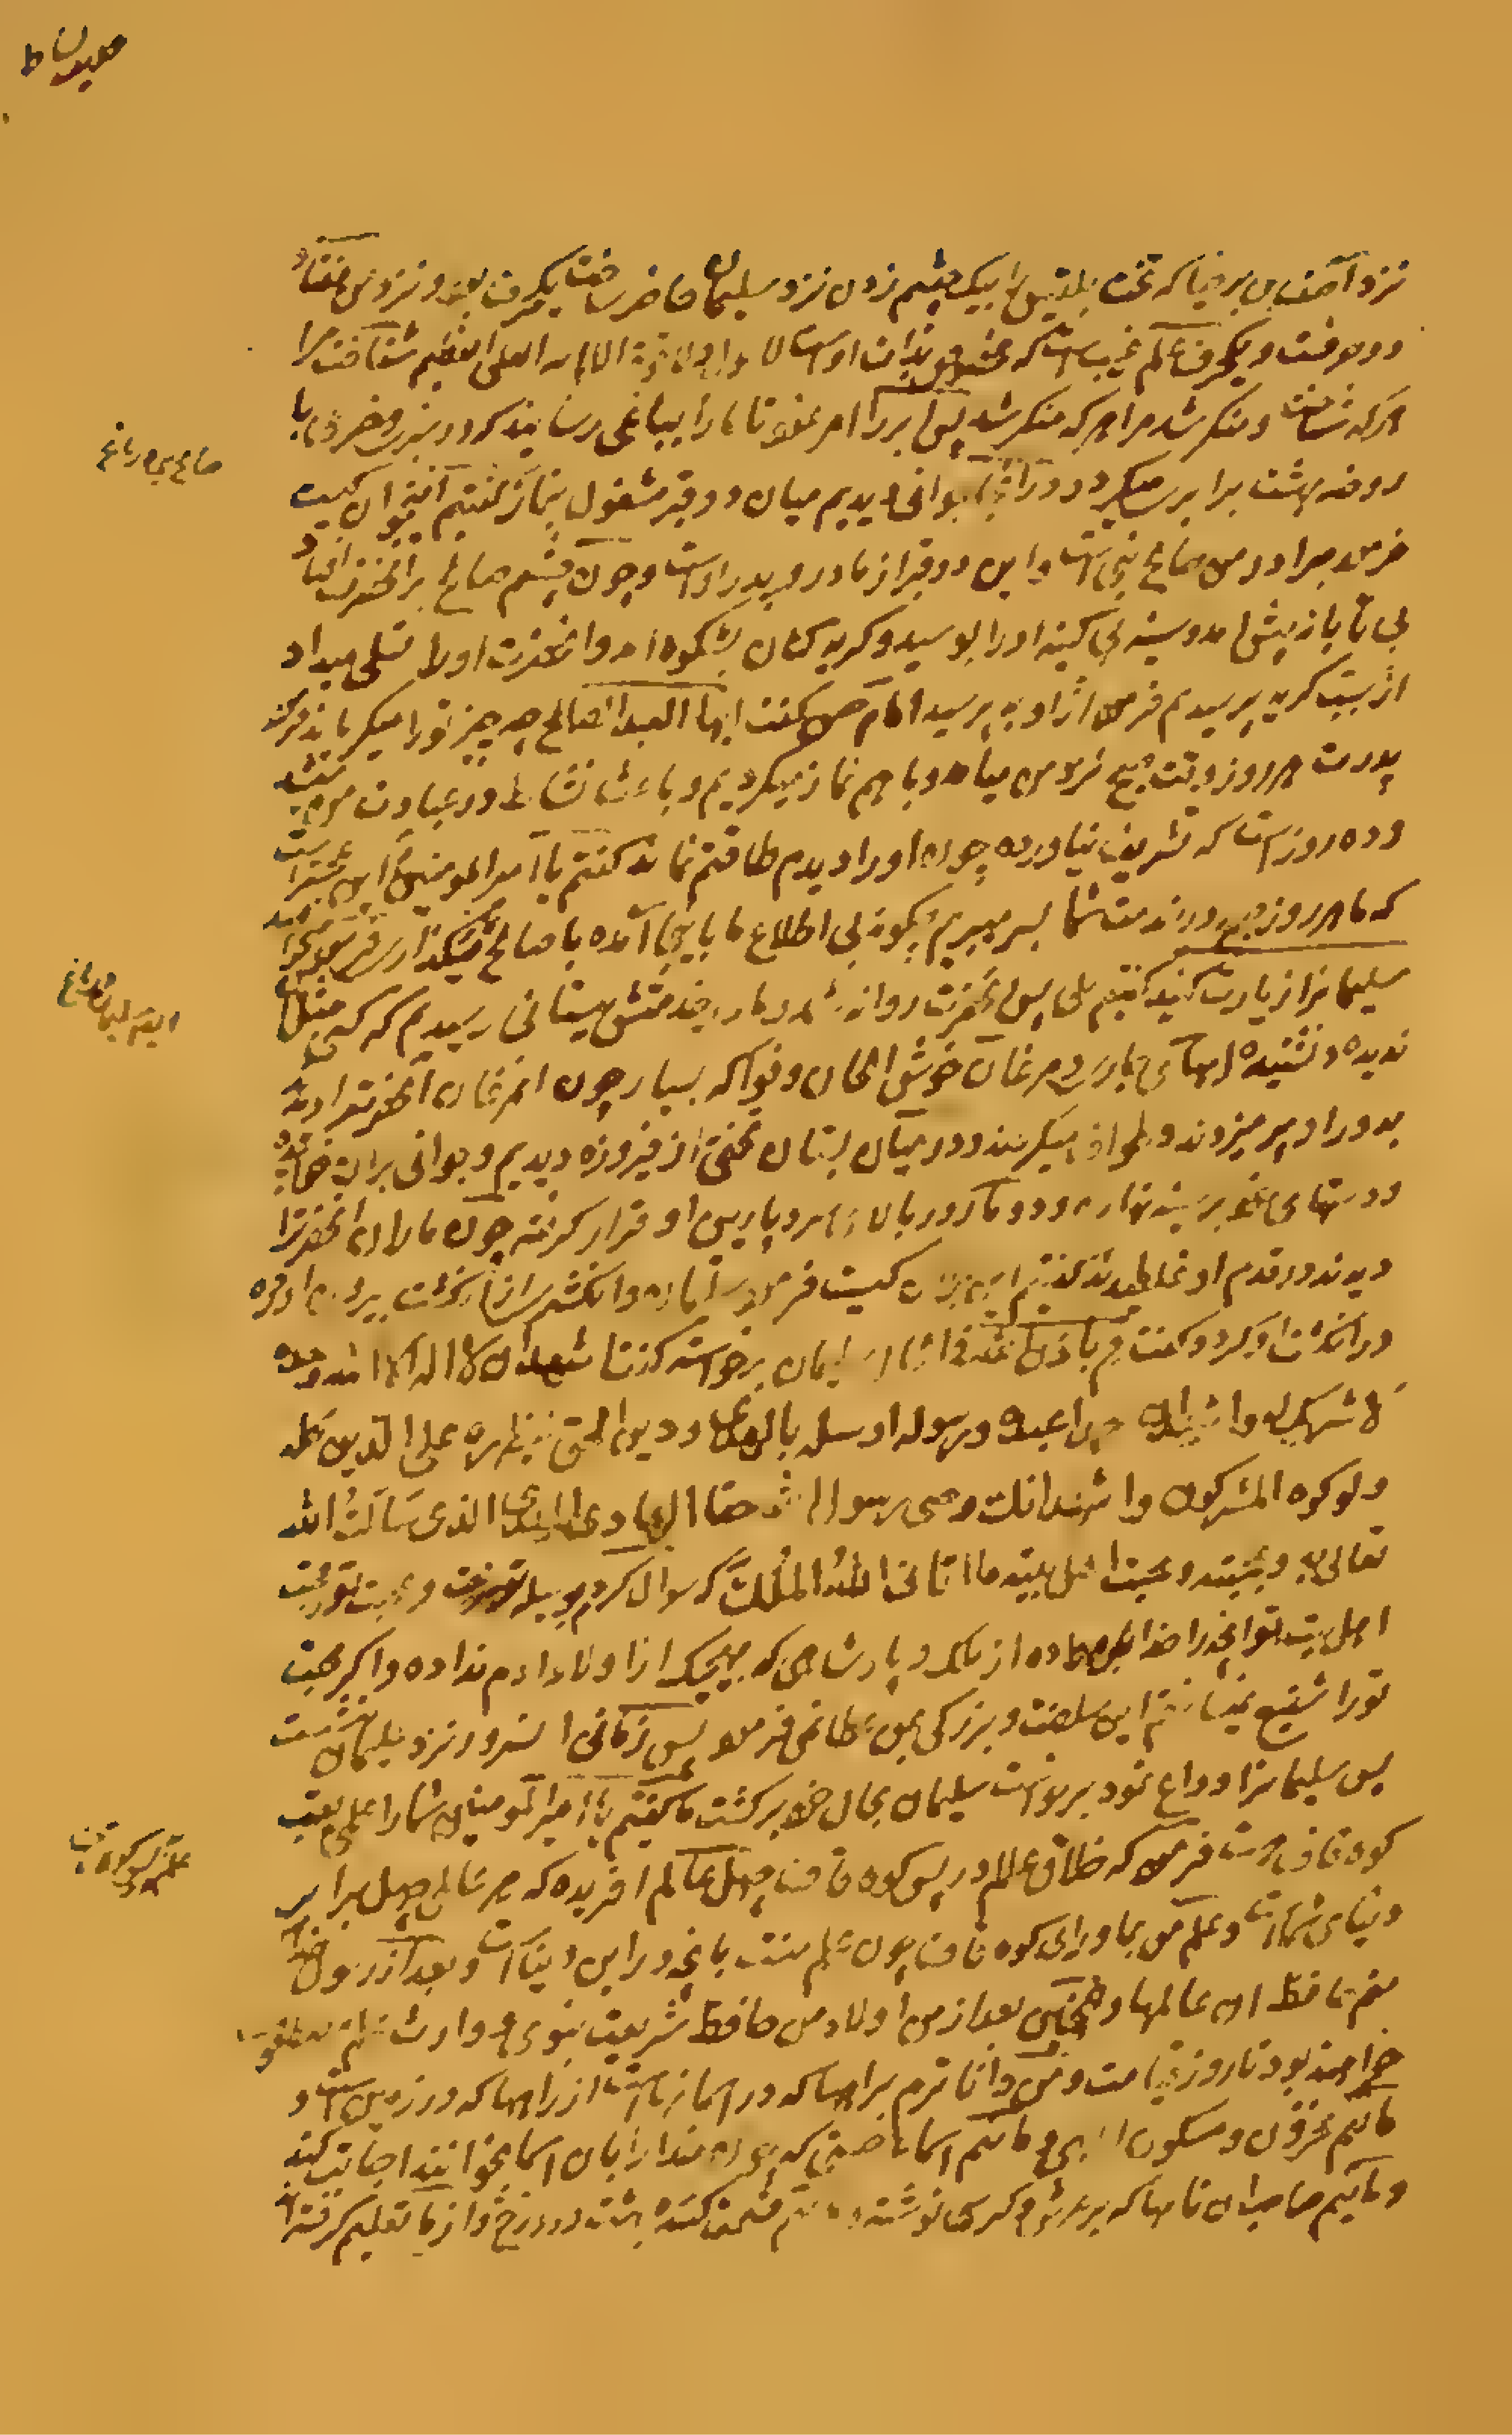 نزد آصف بن برخیا که تخت بلقیس را بیک چشم زدن نزد سلیمان حاضر ساخت یکحرف بود و نزد من هفتاد
دو حرفست و یکحرف علم غیب است که مخصوص بذات اوست لا حول ولا قوة الا بالله العلی العظیم شناخت مرا
هرکه شناخت و منکر شد مرا هر که منکر شد پس ابر را امر نمود تا ما را بباغی رسانید که در سبزی و خضرت با
روضه بهشت برابری میکرد و در آنجا جوانی دیدیم میان دو قبر مشغول بنماز گفتیم این جوان کیست
فرمود برادر من صالح نبی است و این دو قبر از مادر و پدر اوست و چون چشم صالح بر آنحضرت افتاد
بی تابانه پیش آمد و سینه بی کینه او را بوسید و گریه کنان بشکوه آمد و آنحضرت او را تسلی میداد
از سبب گریه پرسیدیم فرمود از او بپرسید امام حسن گفت ایها العبد الصالح چه چیز تو را میگریاند گفت
پدرت هر روز وقت صبح نزد من میآمد و با هم نماز میکردیم و باعث نشاط در عبادت من میشد
و ده روز است که تشریف نیاورده چون او را دیدم طاقتم نماند گفتیم یا امیرالمومنین این عجبتر است
که ما هر روز صبح در خدمت شما بسر میبریم چگونه بی اطلاع ما باینجا آمده با صالح نماز میگذاری فرمود میخواهید
سلیمان را زیارت کنید گفتیم بلی پس آنحضرت روانه شد و ما در خدمتش ببستانی رسیدیم که کسی مثل آن
ندیده و نشنیده آبهای جاری و مرغان خوش الحان و فواکه بسیار چون آن مرغان آنحضرت را دیدند
بدور او پر میزدند و طواف میکردند و در میان بستان تختی از فیروزه دیدیم و جوانی بر آن خوابیده
و دستهای خود بر سینه نهاده و دو مار در بالای سر و پایین او قرار گرفته چون ماران آنحضرت را
دیدند در قدم او غلطیدند گفتیم این جوان کیست فرمود سلیمان و انگشتر سلیمان را از انگشت بیرون آورده
در انگشت او کرد و گفت قم باذن الله فی الحال سلیمان برخواسته گفت اشهد ان لا اله الا الله وحده
لا شریک له و اشهد ان محمدا عبده و رسوله ارسله بالهدی و دین الحق لیظهره علی الدین کله
ولو کره المشرکون و اشهد انک وصی رسول الله حقا الهادی المهدی الذی سألت الله
تعالی به و بمحبته و محبت اهل بیته ما اتانی الله الملک که سوال کردم بوسیله تو و محبت تو و محبت
اهل بیت تو آنچه را خدا بمن داده از ملک و پادشاهی که بهیچیک از اولاد آدم نداده و اگر محبت
تو را شفیع نمیساختم این سلطنت و بزرگی بمن عطا نمی فرمود پس زمانی آنسرور نزد سلیمان نشست
پس سلیمان را وداع نمود برخواست سلیمان بحال خود برگشت ما گفتیم یا امیرالمومنین شما را علمی بعقب
کوه قاف هست فرمود که خلاق عالم در پس کوه قاف چهل عالم آفریده که هر عالمی چهل برابر
دنیای شماست و علم من بماورای کوه قاف چون علم منست بآنچه در این دنیا است و بعد از رسول خدا
منم حافظ آن عالمها و همچنین بعد از من اولاد من حافظ شریعت نبوی و وارث علم
خواهند بود تا روز قیامت و من داناترم براهها که در آسمانهاست از راهها که در زمین است و
مائیم مخزون و مکنون الهی و مائیم اسماء حسنی که چون خدا را بآن اسما بخوانند اجابت کند
و مائیم صاحبان نامها که بر عرش و کرسی نوشته و مائیم قسمت کننده بهشت و دوزخ و از ما تعلیم گرفته اند